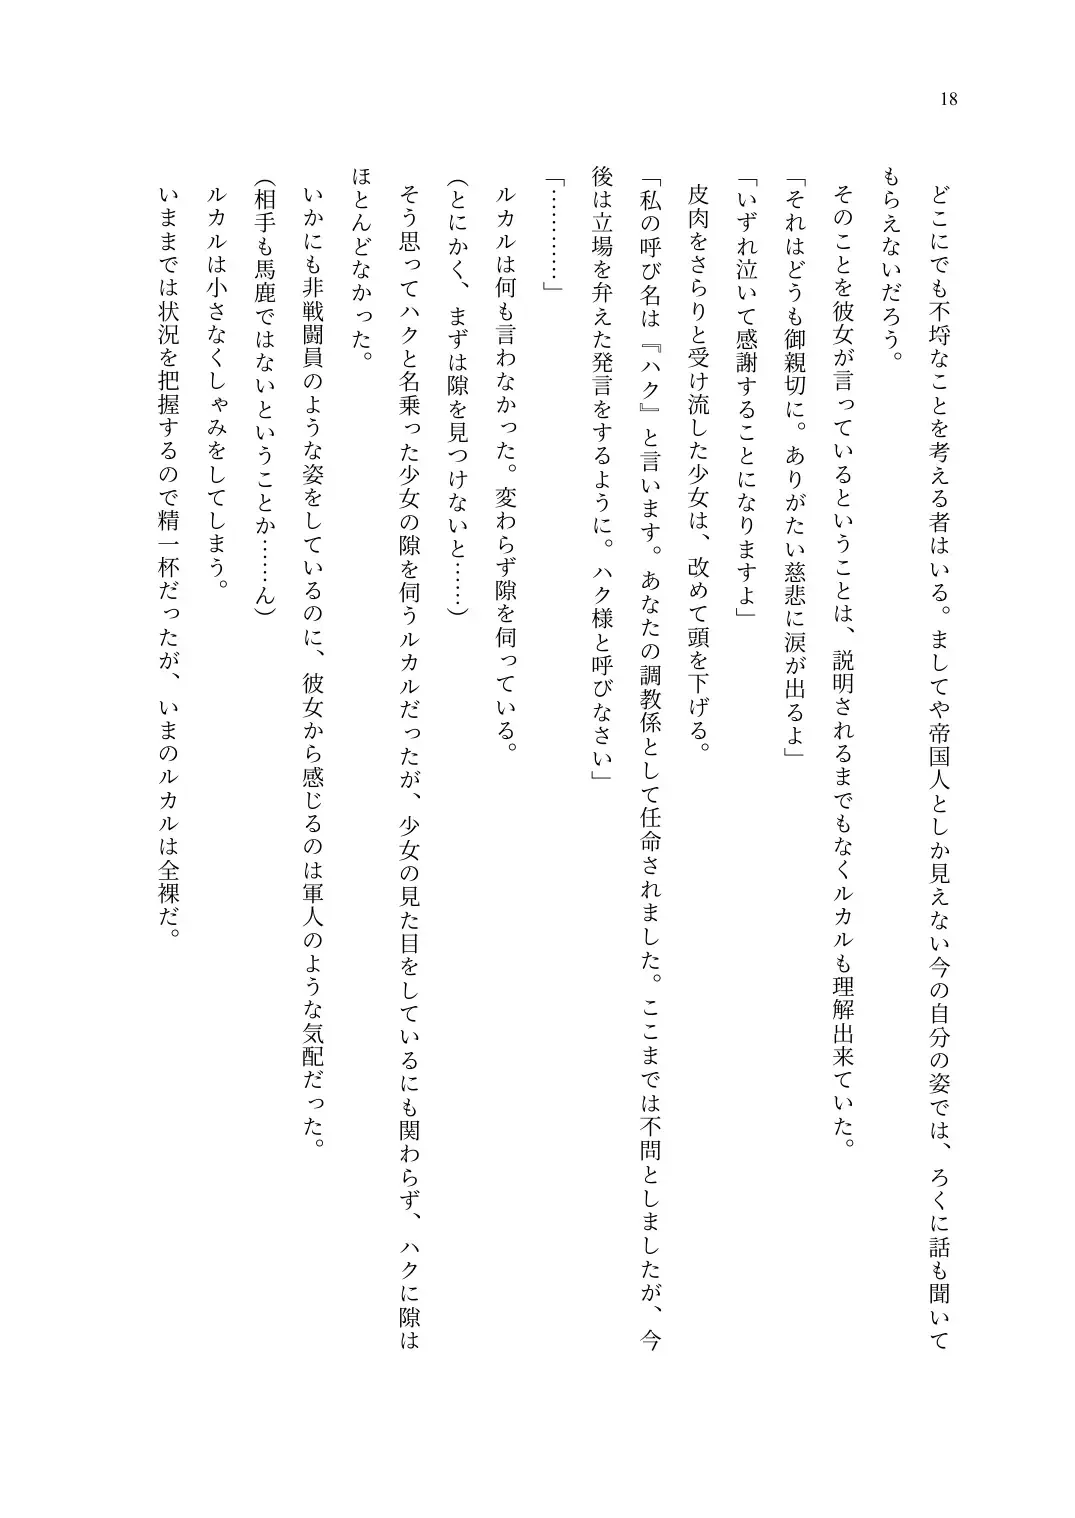 18
どこにでも不埒なことを考える者はいる。ましてや帝国人としか見えない今の自分の姿では、ろくに話も聞いて
もらえないだろう。
そのことを彼女が言っているということは、説明されるまでもなくルカルも理解出来ていた。
「それはどうも御親切に。ありがたい慈悲に涙が出るよ」
「いずれ泣いて感謝することになりますよ」
皮肉をさらりと受け流した少女は、改めて頭を下げる。
「私の呼び名は『ハク』と言います。あなたの調教係として任命されました。ここまでは不問としましたが、今
後は立場を弁えた発言をするように。ハク様と呼びなさい」
「…………」
ルカルは何も言わなかった。変わらず隙を伺っている。
(とにかく、まずは隙を見つけないと……)
そう思ってハクと名乗った少女の隙を伺うルカルだったが、少女の見た目をしているにも関わらず、ハクに隙は
ほとんどなかった。
いかにも非戦闘員のような姿をしているのに、彼女から感じるのは軍人のような気配だった。
(相手も馬鹿ではないということか……ん)
ルカルは小さなくしゃみをしてしまう。
いままでは状況を把握するので精一杯だったが、いまのルカルは全裸だ。